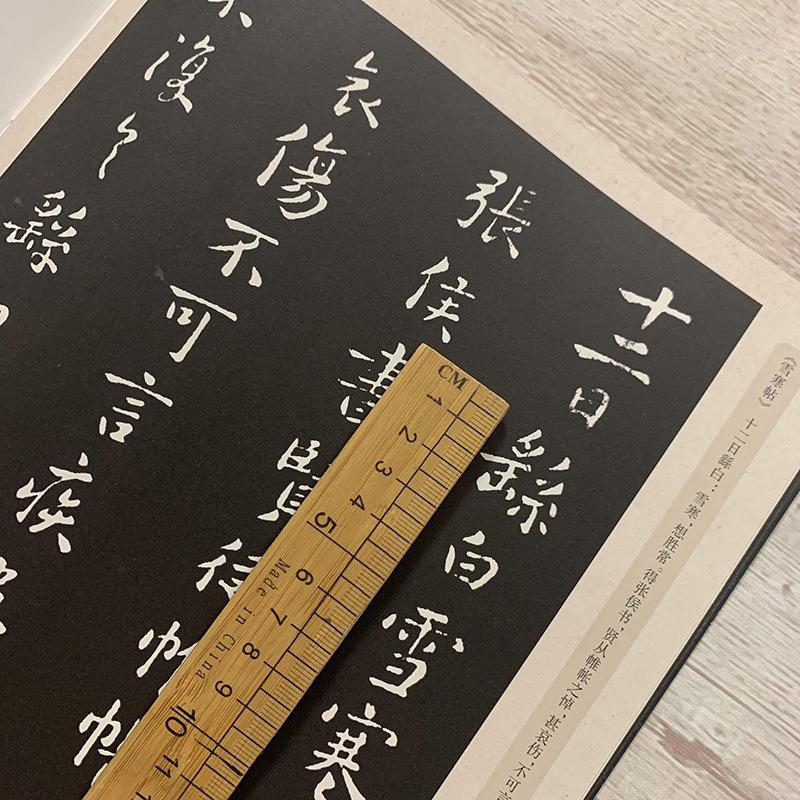 《雪寒帖》
十二日繇白：雪寒，想胜常。得张侯书，贤从帷帐之悼，甚哀伤，不可言
十二日繇白雪寒
張侯書賢從帷帳
哀傷不可言疾
不復々繇
CM
1 2 3 4 5 6 7 8 9 10 11
Made in China